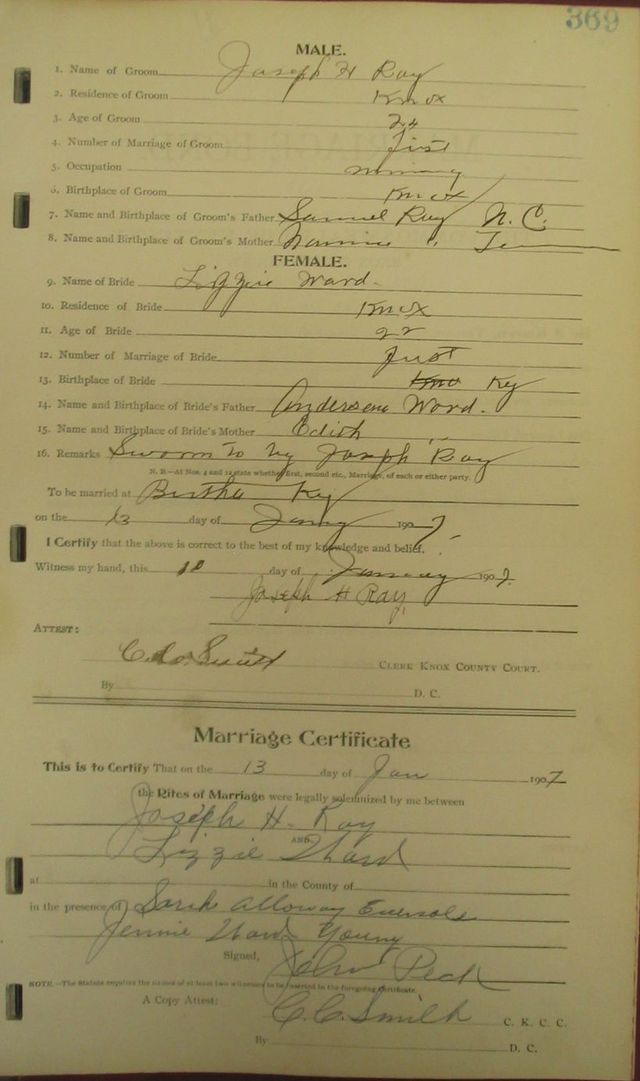 369
MALE.
1. Name of Groom Joseph H Ray
2. Residence of Groom Knox
3. Age of Groom 24
4. Number of Marriage of Groom First
5. Occupation mining
6. Birthplace of Groom Knox
7. Name and Birthplace of Groom's Father Samuel Ray N. C.
8. Name and Birthplace of Groom's Mother Nannie " Ten
FEMALE.
9. Name of Bride Lizzie Ward.
10. Residence of Bride Knox
11. Age of Bride 22
12. Number of Marriage of Bride First
13. Birthplace of Bride Knox Ky
14. Name and Birthplace of Bride's Father Anderson Ward.
15. Name and Birthplace of Bride's Mother Edith "
16. Remarks Sworn to by Joseph Ray
N. B.—At Nos. 4 and 12 state whether first, second etc., Marriage, of each or either party.
To be married at Bertha Ky
on the 13 day of Jany 1907.
I Certify that the above is correct to the best of my knowledge and belief.
Witness my hand, this 10 day of January 1907.
Joseph H Ray
ATTEST:
Smith CLERK KNOX COUNTY COURT.
By D. C.
Marriage Certificate
This is to Certify That on the 13 day of Jan 1907
the Rites of Marriage were legally solemnized by me between
Joseph H. Ray
AND
Lizzie Ward
at in the County of
in the presence of Sarah Alloway Eversole
Jennie Ward Young
Signed, John Peck
NOTE.—The Statute requires the names of at least two witnesses to be inserted in the foregoing certificate.
A Copy Attest: C. C. Smith C. K. C. C.
By D. C.